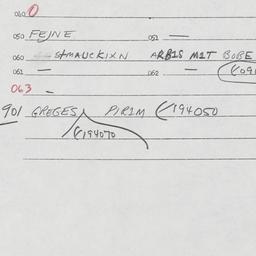 040 0
050 FEINE 051 —
060 STMAUCKIXN ARBIS MIT BOBE
061 — 062 — (/091
063 -
901 GREGES PIRIM (/194050
(/194070